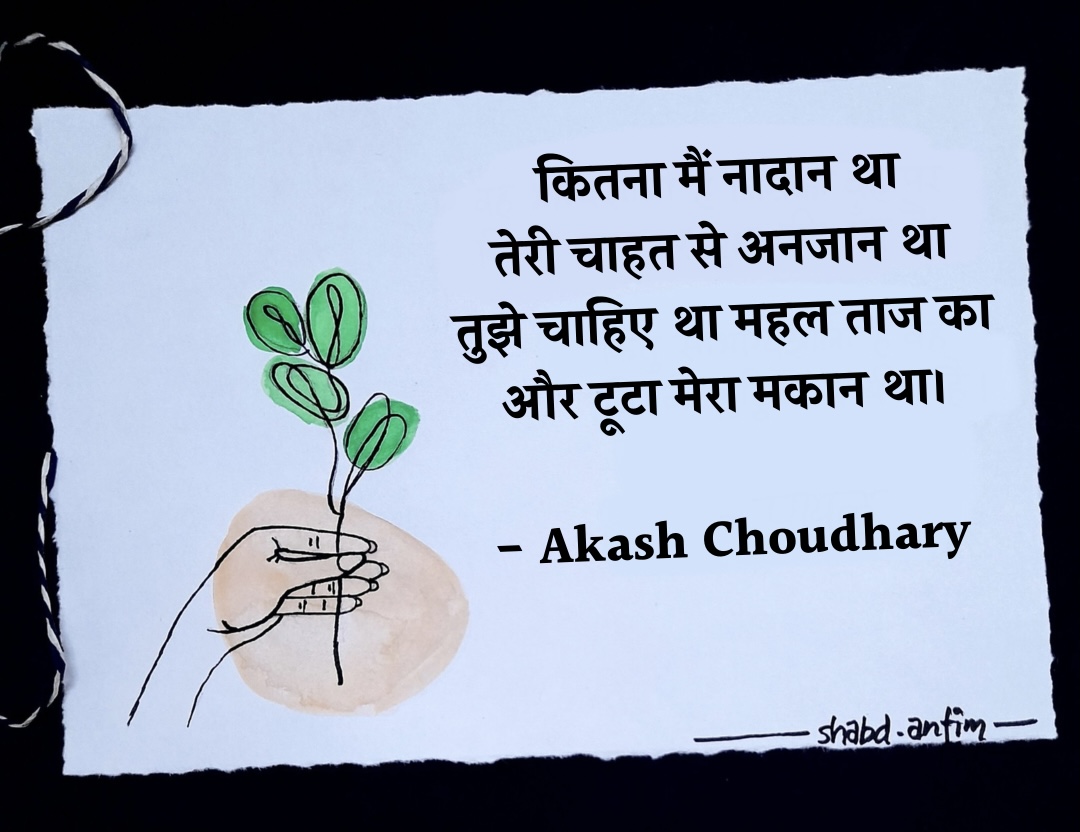 कितना मैं नादान था
तेरी चाहत से अनजान था
तुझे चाहिए था महल ताज का
और टूटा मेरा मकान था।
– Akash Choudhary
shabd.antim